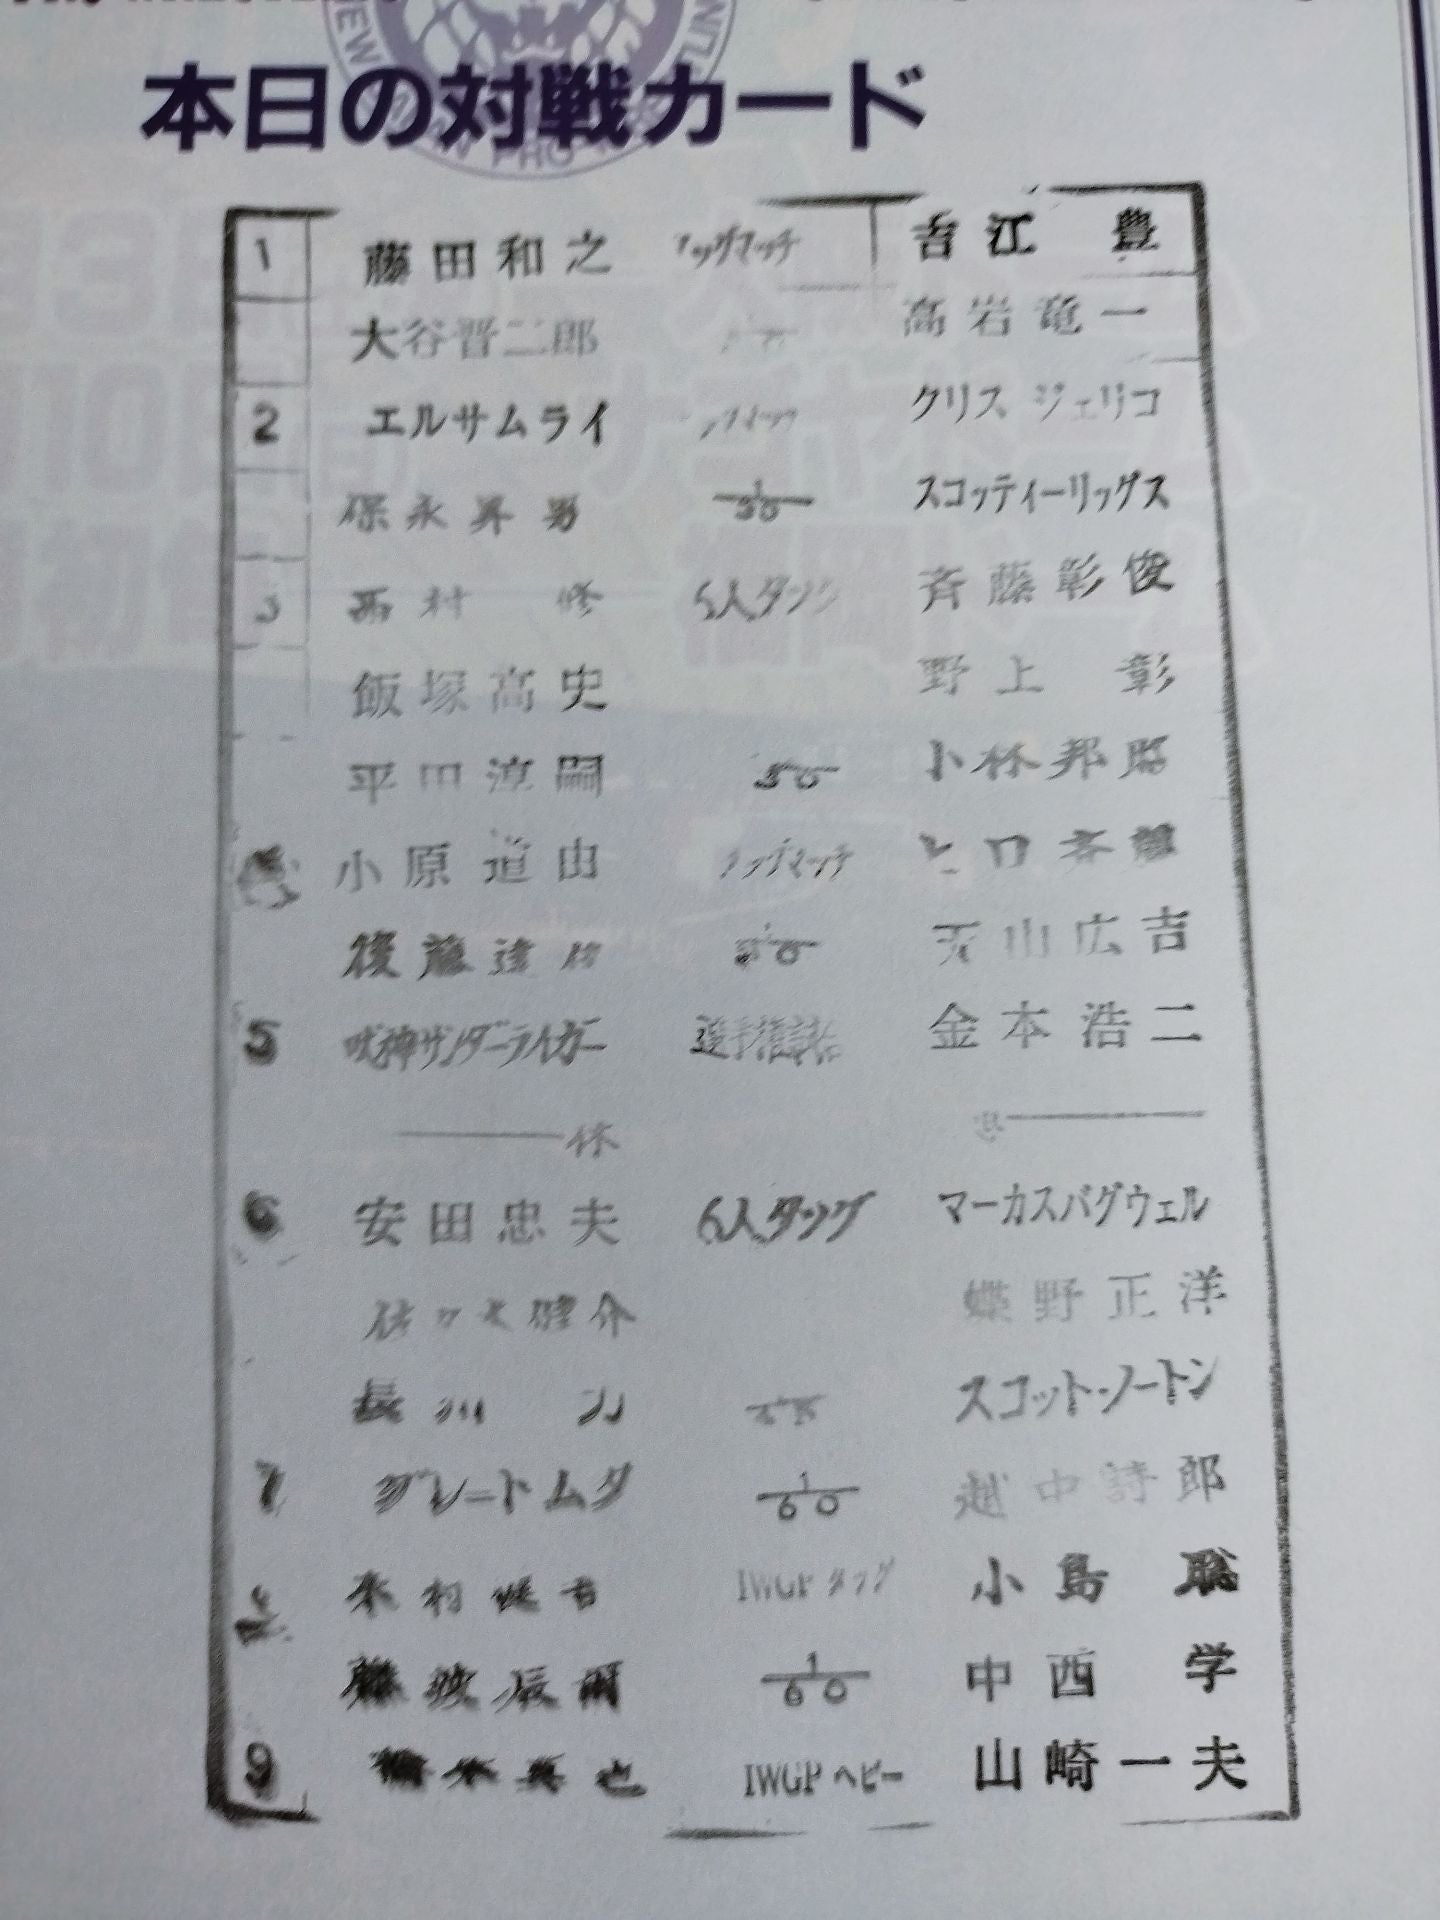 本日の対戦カード
1 藤田和之 タッグマッチ 吉江 豊
大谷晋二郎 高岩竜一
2 エルサムライ クリス ジェリコ
保永昇男 1/30 スコッティーリッグス
3 西村 修 6人タッグ 斉藤彰俊
飯塚高史 野上 彰
平田淳嗣 30 小林邦昭
小原道由 タッグマッチ ヒロ斉藤
後藤達俊 天山広吉
5 獣神サンダーライガー 選手権試合 金本浩二
休 憩
6 安田忠夫 6人タッグ マーカスバグウェル
佐々木健介 蝶野正洋
長州 力 スコット・ノートン
7 グレートムタ 1/60 越中詩郎
木村健吾 IWGPタッグ 小島 聡
藤波辰爾 1/60 中西 学
9 橋本真也 IWGPヘビー 山崎一夫